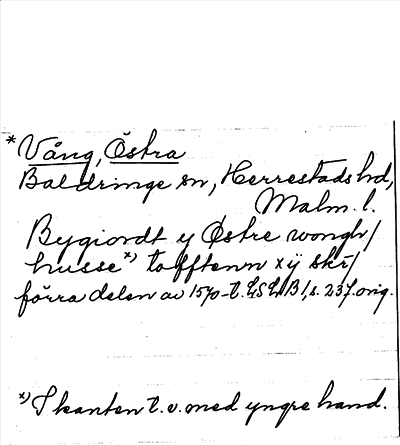 * Vång, Östra
Baldringe sn, Herrestads hd,
Malm. l.
Bygiordt y Østre wongh /
husse *) tofftenn x ÿ skr /
förra delen av 1570-t. LSLB /, s. 237. orig.
*) I kanten t. v. med yngre hand.